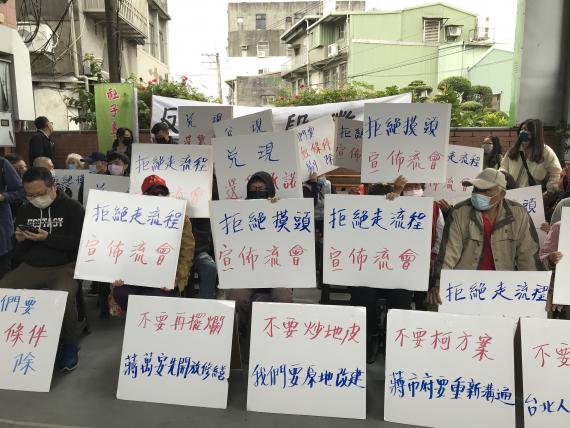 社子
反
兌現
兌現
選
承諾
們要
條件
刪除
拒絕摸頭
宣佈流會
拒絕走流程
拒絕走流程
宣佈流會
拒絕摸頭
宣佈流會
拒絕走流程
宣佈流會
拒絕走流程
拒絕走流程
們要
條件
除
不要再擺爛
蔣萬安先開放修繕
不要炒地皮
我們要原地改建
不要柯方案
蔣市府要重新溝通
不要
台北人